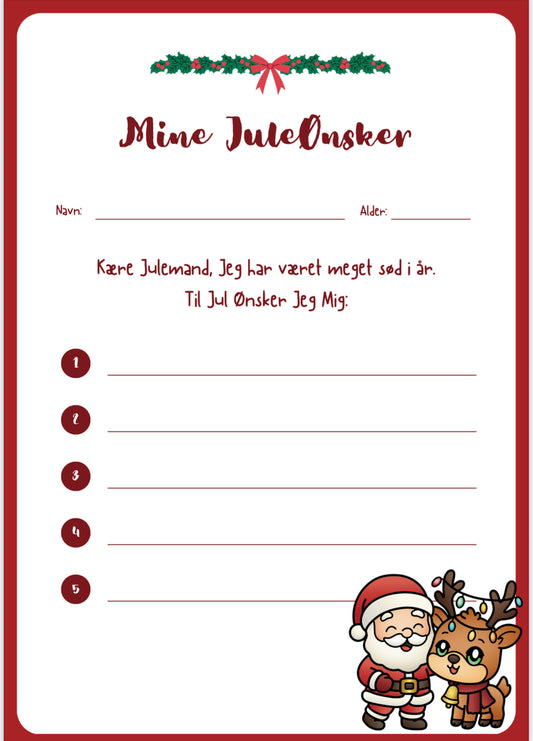 Mine JuleØnsker
Navn: Alder:
Kære Julemand, Jeg har været meget sød i år.
Til Jul Ønsker Jeg Mig:
1
2
3
4
5